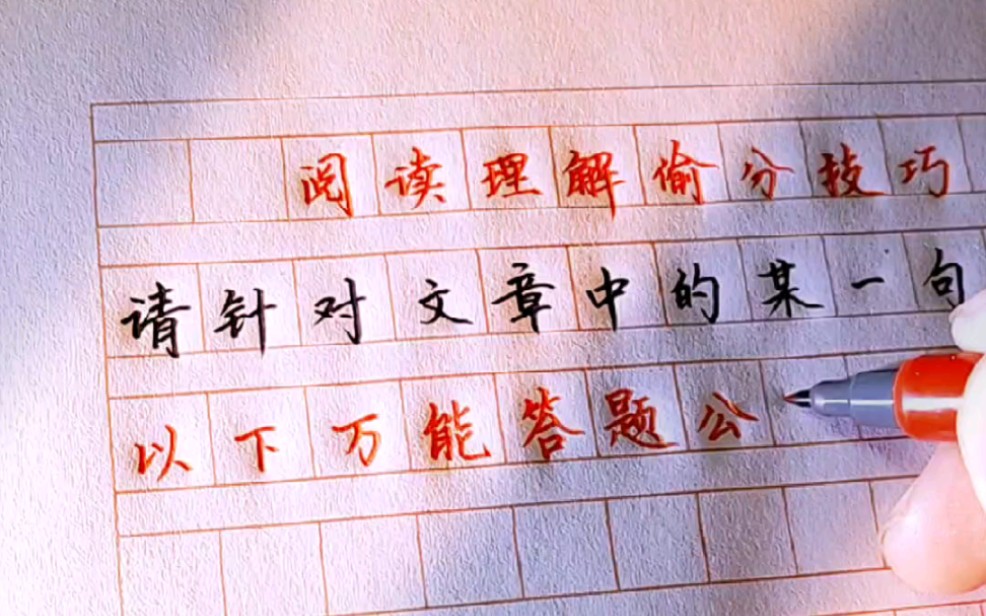 阅读理解偷分技巧
请针对文章中的某一句
以下万能答题公